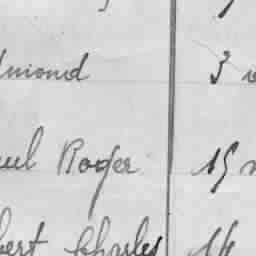 dmond 3
uel Roger 15
bert Charles 14